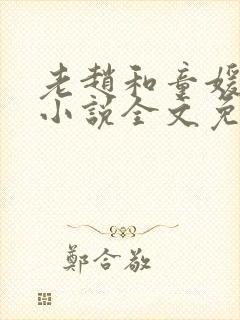 老趙和童媛
小說全文免
鄭合敬